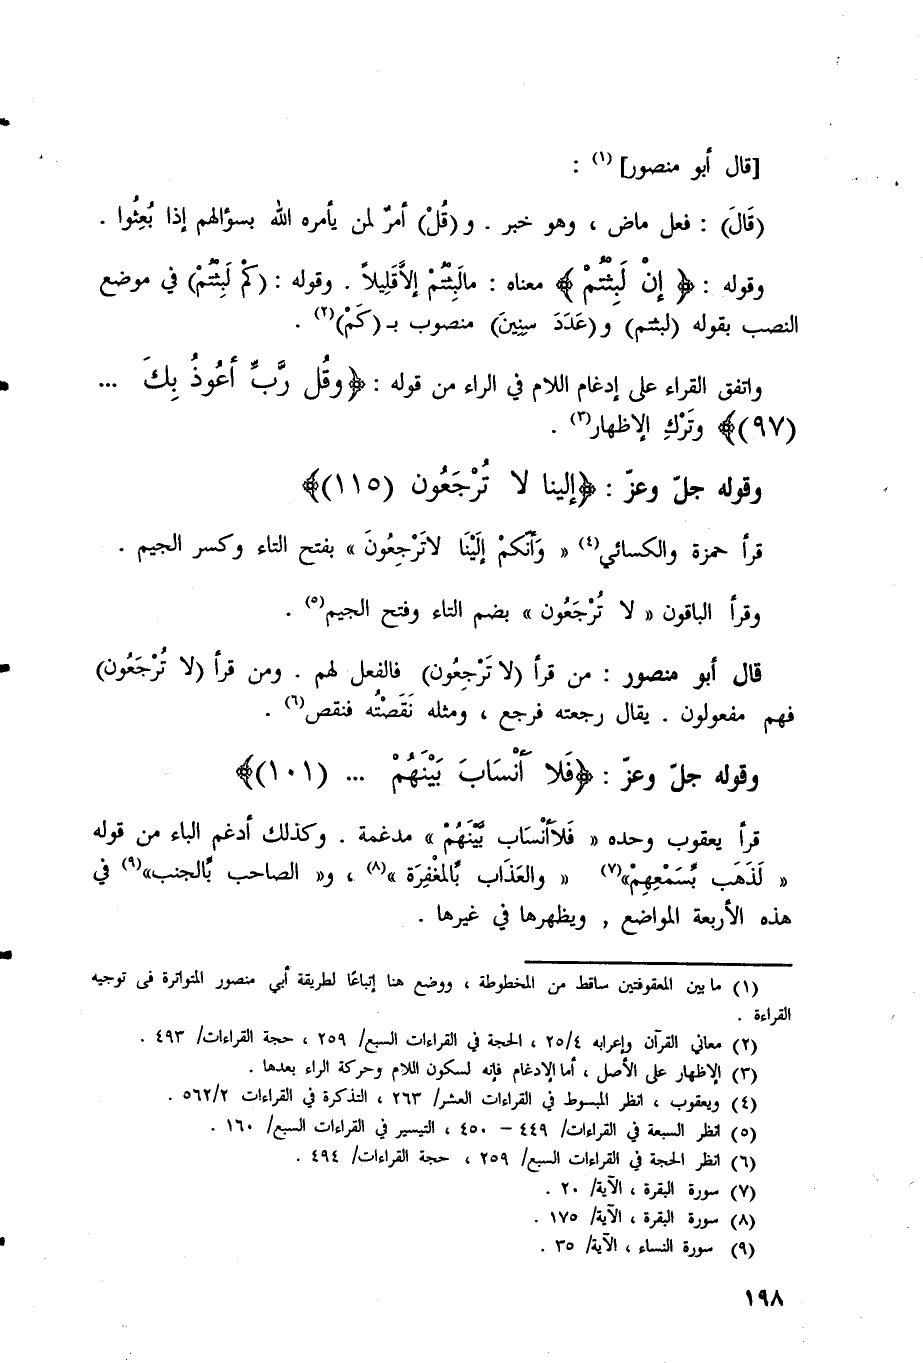 [قال أبو منصور] (١) :
(قَالَ) : فعل ماض ، وهو خبر . و (قُلْ) أمرٌ لمن يأمره الله بسؤالهم إذا بُعِثُوا .
وقوله : ﴿ إِنْ لَبِثْتُمْ ﴾ معناه : مالَبِثْتُمْ إلاَّقَلِيلاً . وقوله : (كَمْ لَبِثْتُمْ) في موضع
النصب بقوله (لبثتم) و (عَدَدَ سِنِينَ) منصوب بـ (كَمْ)(٢) .
واتفق القراء على إدغام اللام في الراء من قوله : ﴿وقُل رَّبِّ أعُوذُ بِكَ ...
(٩٧)﴾ وتَرْكِ الإظهار(٣) .
وقوله جلّ وعزّ : ﴿إلينا لا تُرْجَعُون (١١٥)﴾
قرأ حمزة والكسائي(٤) « وَأَنَّكمْ إِلَيْنَا لاتَرْجِعُونَ » بفتح التاء وكسر الجيم .
وقرأ الباقون « لا تُرْجَعُون » بضم التاء وفتح الجيم(٥) .
قال أبو منصور : من قرأ (لا تَرْجِعُون) فالفعل لهم . ومن قرأ (لا تُرْجَعُون)
فهم مفعولون . يقال رجعته فرجع ، ومثله نَقَصْتُه فنقص(٦) .
وقوله جلّ وعزّ : ﴿فَلا أَنْسَابَ بَيْنَهُمْ ... (١٠١)﴾
قرأ يعقوب وحده « فَلاَأَنْسَاب بَّيْنَهُمْ » مدغمة . وكذلك أدغم الباء من قوله
« لَذَهَب بِّسَمْعِهِمْ»(٧) « والعَذَاب بِّالمَغْفِرَة »(٨) ، و« الصاحب بِّالجنب»(٩) في
هذه الأربعة المواضع , ويظهرها في غيرها .
(١) مابين المعقوفتين ساقط من المخطوطة ، ووضع هنا إتباعًا لطريقة أبي منصور المتواترة فى توجيه
القراءة .
(٢) معاني القرآن وإعرابه ٢٥/٤ ، الحجة في القراءات السبع/ ٢٥٩ ، حجة القراءات/ ٤٩٣ .
(٣) الإظهار على الأصل ، أما الإدغام فإنه لسكون اللام وحركة الراء بعدها .
(٤) ويعقوب ، انظر المبسوط في القراءات العشر/ ٢٦٣ ، التذكرة في القراءات ٥٦٢/٢ .
(٥) انظر السبعة في القراءات/ ٤٤٩ – ٤٥٠ ، التيسير في القراءات السبع/ ١٦٠ .
(٦) انظر الحجة في القراءات السبع/ ٢٥٩ ، حجة القراءات/ ٤٩٤ .
(٧) سورة البقرة ، الآية/ ٢٠ .
(٨) سورة البقرة ، الآية/ ١٧٥ .
(٩) سورة النساء ، الآية/ ٣٥ .
١٩٨